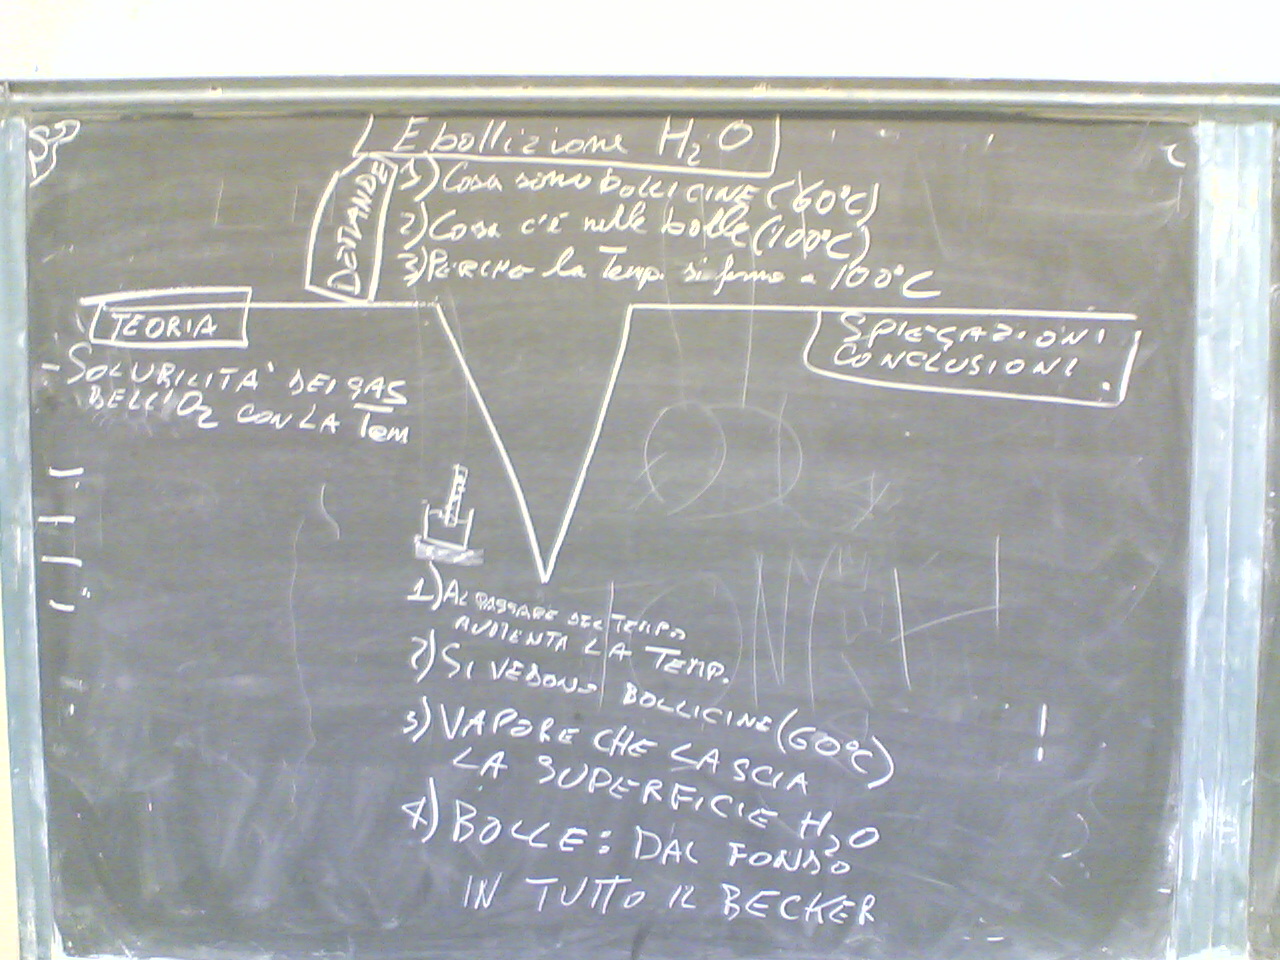 Ebollizione H2O
DOMANDE
1) Cosa sono BOLLICINE (60°C)
2) Cosa c'è nelle bolle (100°C)
3) PERCHE la Temp. si ferma a 100°C
TEORIA
SPIEGAZIONI
CONCLUSIONI.
- SOLUBILITA' DEI GAS
DELL'O2 CON LA Tem
1) AL PASSARE DEL TEMPO
AUMENTA LA TEMP.
2) SI VEDONO BOLLICINE (60°C)
3) VAPORE CHE LASCIA
LA SUPERFICIE H2O
4) BOLLE: DAL FONDO
IN TUTTO IL BECKER
!